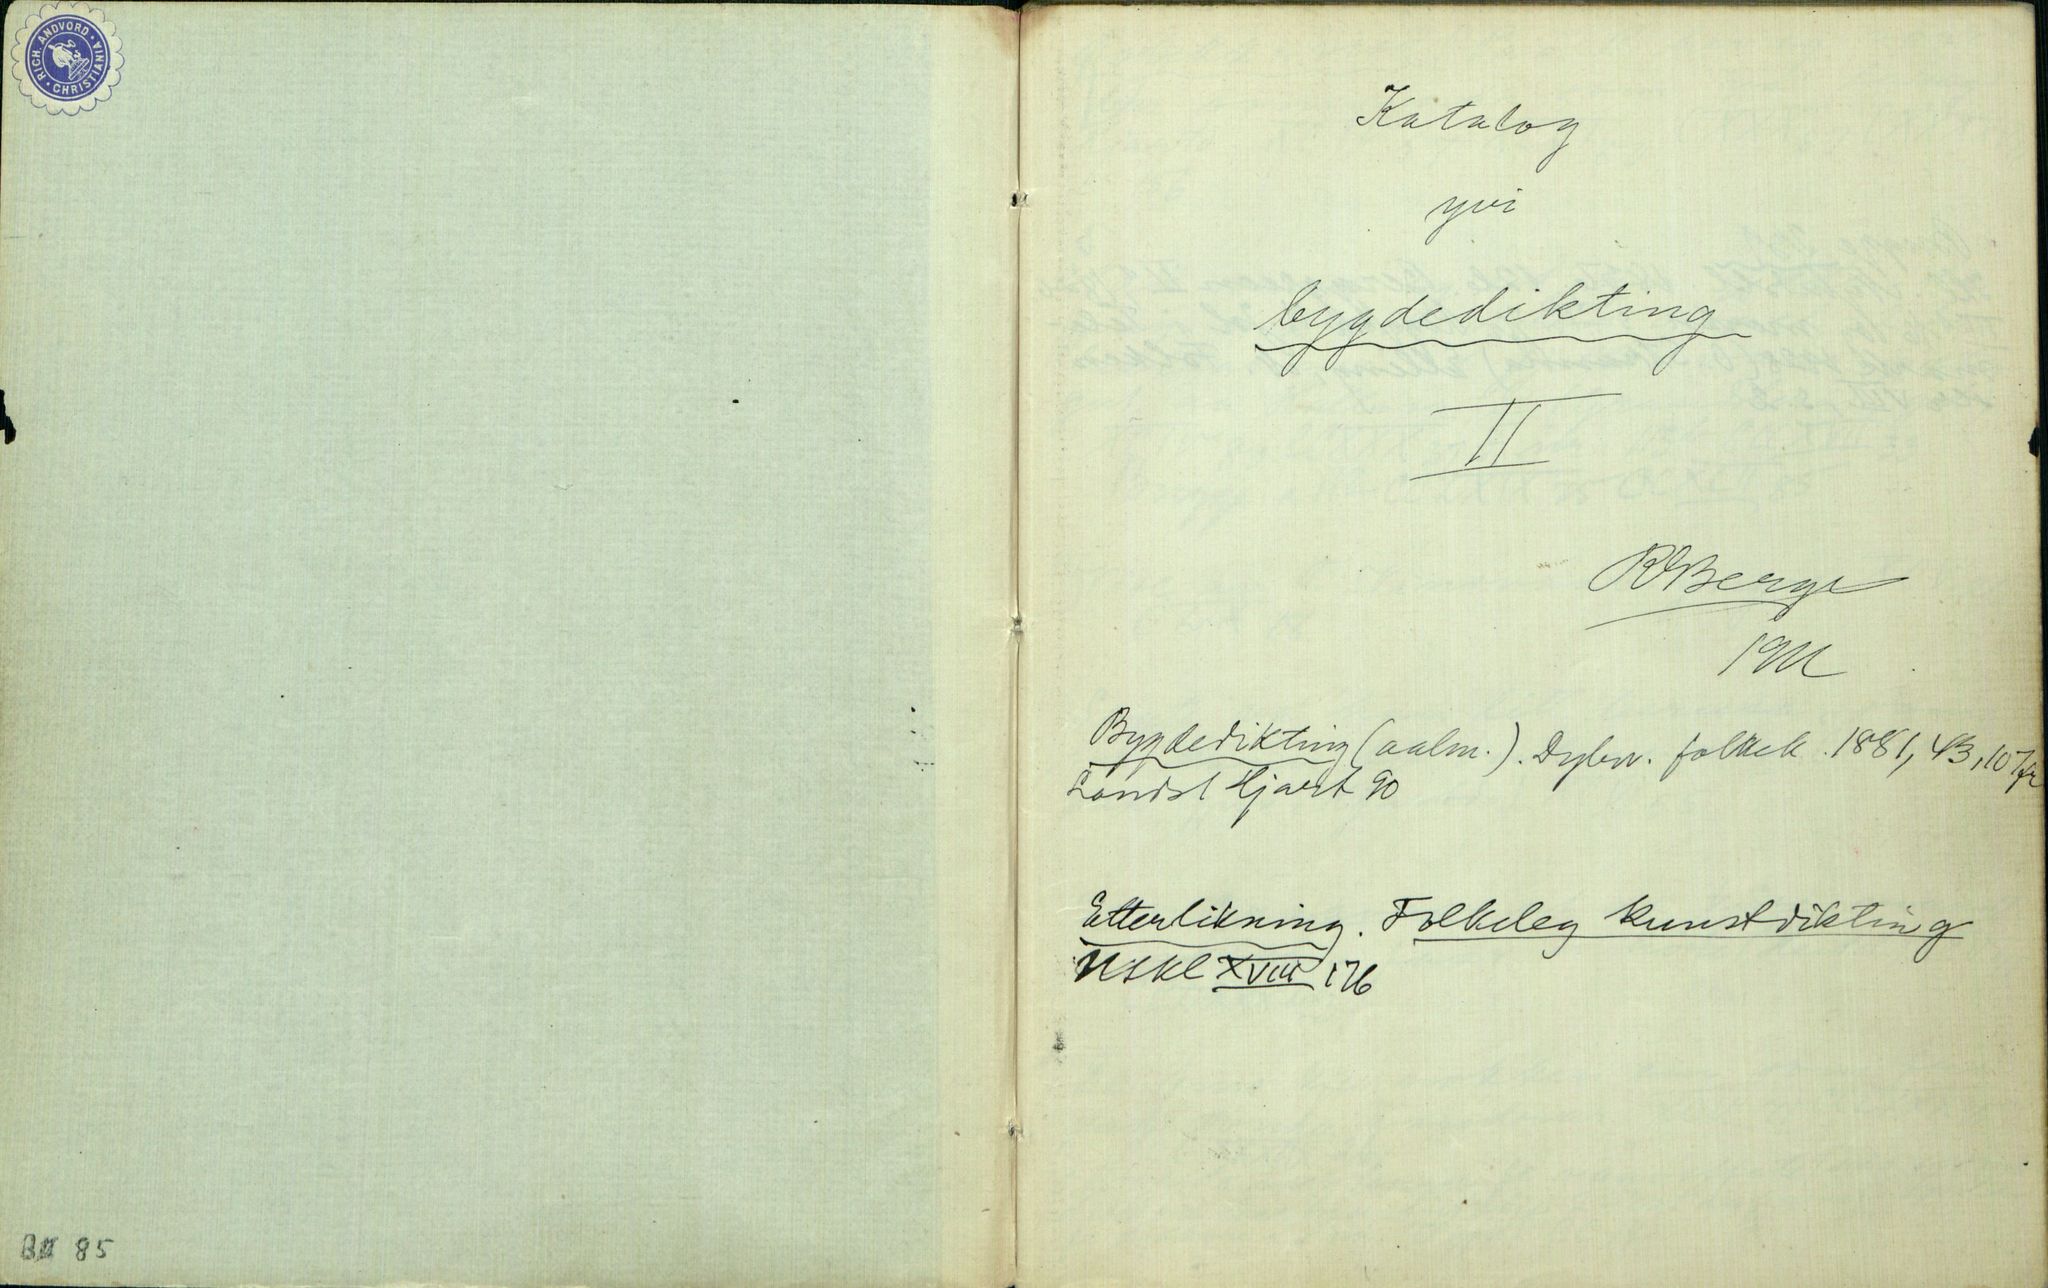 RICH. ANDVORD · CHRISTIANIA ·
85
Katalog
yvi
bygdedikting
II
RBerge
1911
Bygdedikting (aalm.). Dybw. folkek. 1881, 43, 107 fr
Landst Hjart 90
Etterlikning. Folkeleg kunstdikting
XVIII 176